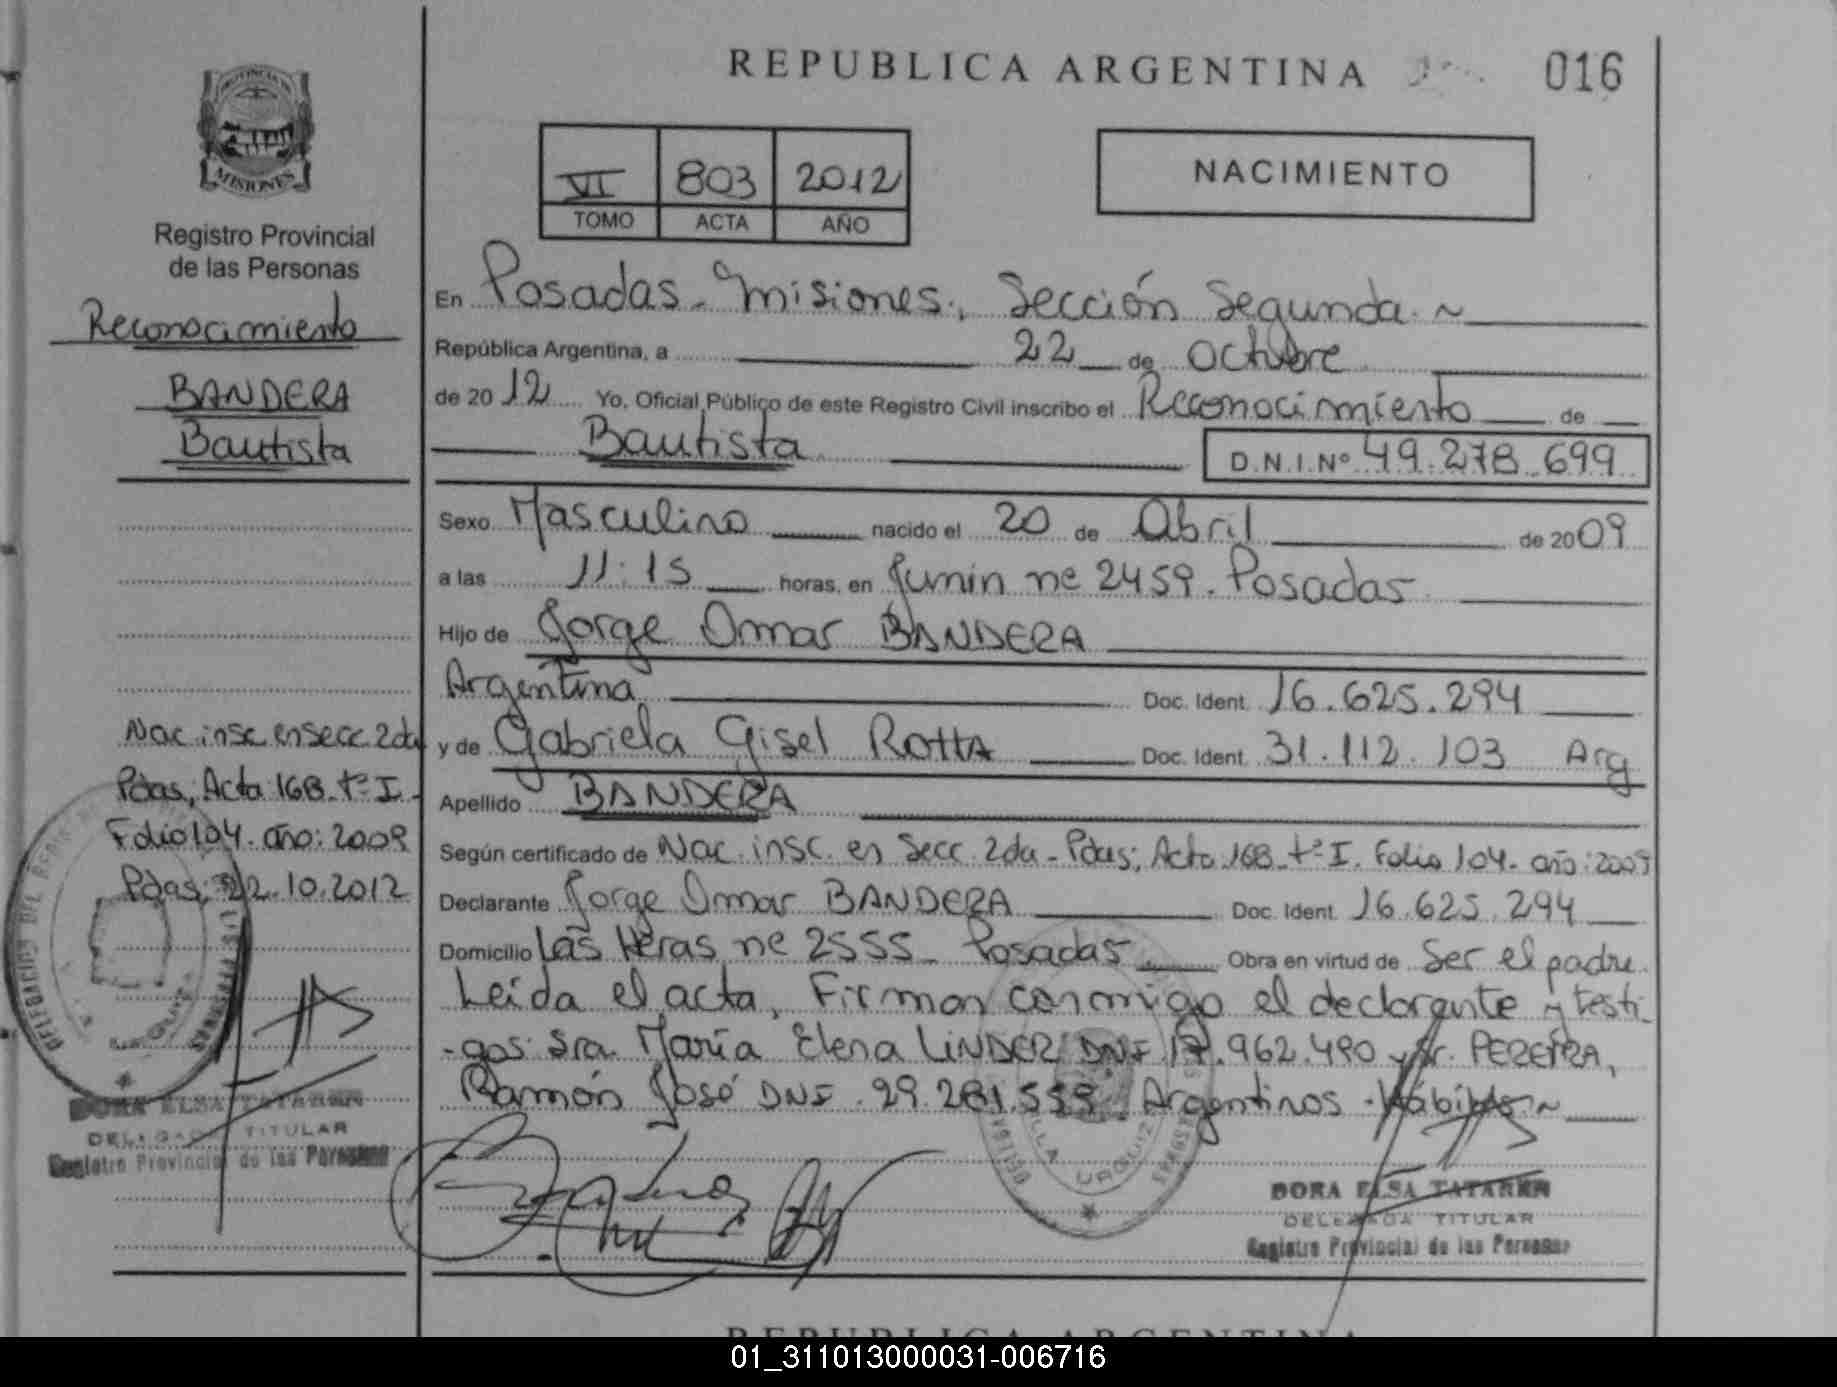 REPUBLICA ARGENTINA
016
PROVINCIA DE
MISIONES
Registro Provincial
de las Personas
Reconocimiento
BANDERA
Bautista
Nac. insc. en secc 2da
Pdas, Acta 168. tº I.
Folio 104. año: 2009
Pdas, 22.10.2012
DORA ELSA TATAREN
DELEGADA TITULAR
Registro Provincial de las Personas
VI 803 2012
TOMO ACTA AÑO
NACIMIENTO
En Posadas - Misiones, Sección Segunda. ~
República Argentina, a 22 de Octubre
de 2012 Yo, Oficial Público de este Registro Civil inscribo el Reconocimiento de
Bautista D.N.I. Nº 49.278.699
Sexo Masculino nacido el 20 de Abril de 2009
a las 11:15 horas, en Junin nº 2459. Posadas
Hijo de Jorge Omar BANDERA
Argentina Doc. Ident. 16.625.294
y de Gabriela Gisel ROTTA Doc. Ident. 31.112.103 Arg
Apellido BANDERA
Según certificado de Nac. insc. en Secc. 2da - Pdas; Acta 168 - tº I. Folio 104 - año: 2009
Declarante Jorge Omar BANDERA Doc. Ident. 16.625.294
Domicilio Las Heras nº 2555 - Posadas Obra en virtud de Ser el padre.
Leída el acta, Firman conmigo el declarante y testi-
-gos: Sra. María Elena LINDER DNI 17.962.490 y Sr. PEREIRA,
Ramón José DNI. 29.281.559. Argentinos - Hábiles ~
VILLA URQUIZA
DORA ELSA TATAREN
DELEGADA TITULAR
Registro Provincial de las Personas
REPUBLICA ARGENTINA
01_311013000031-006716